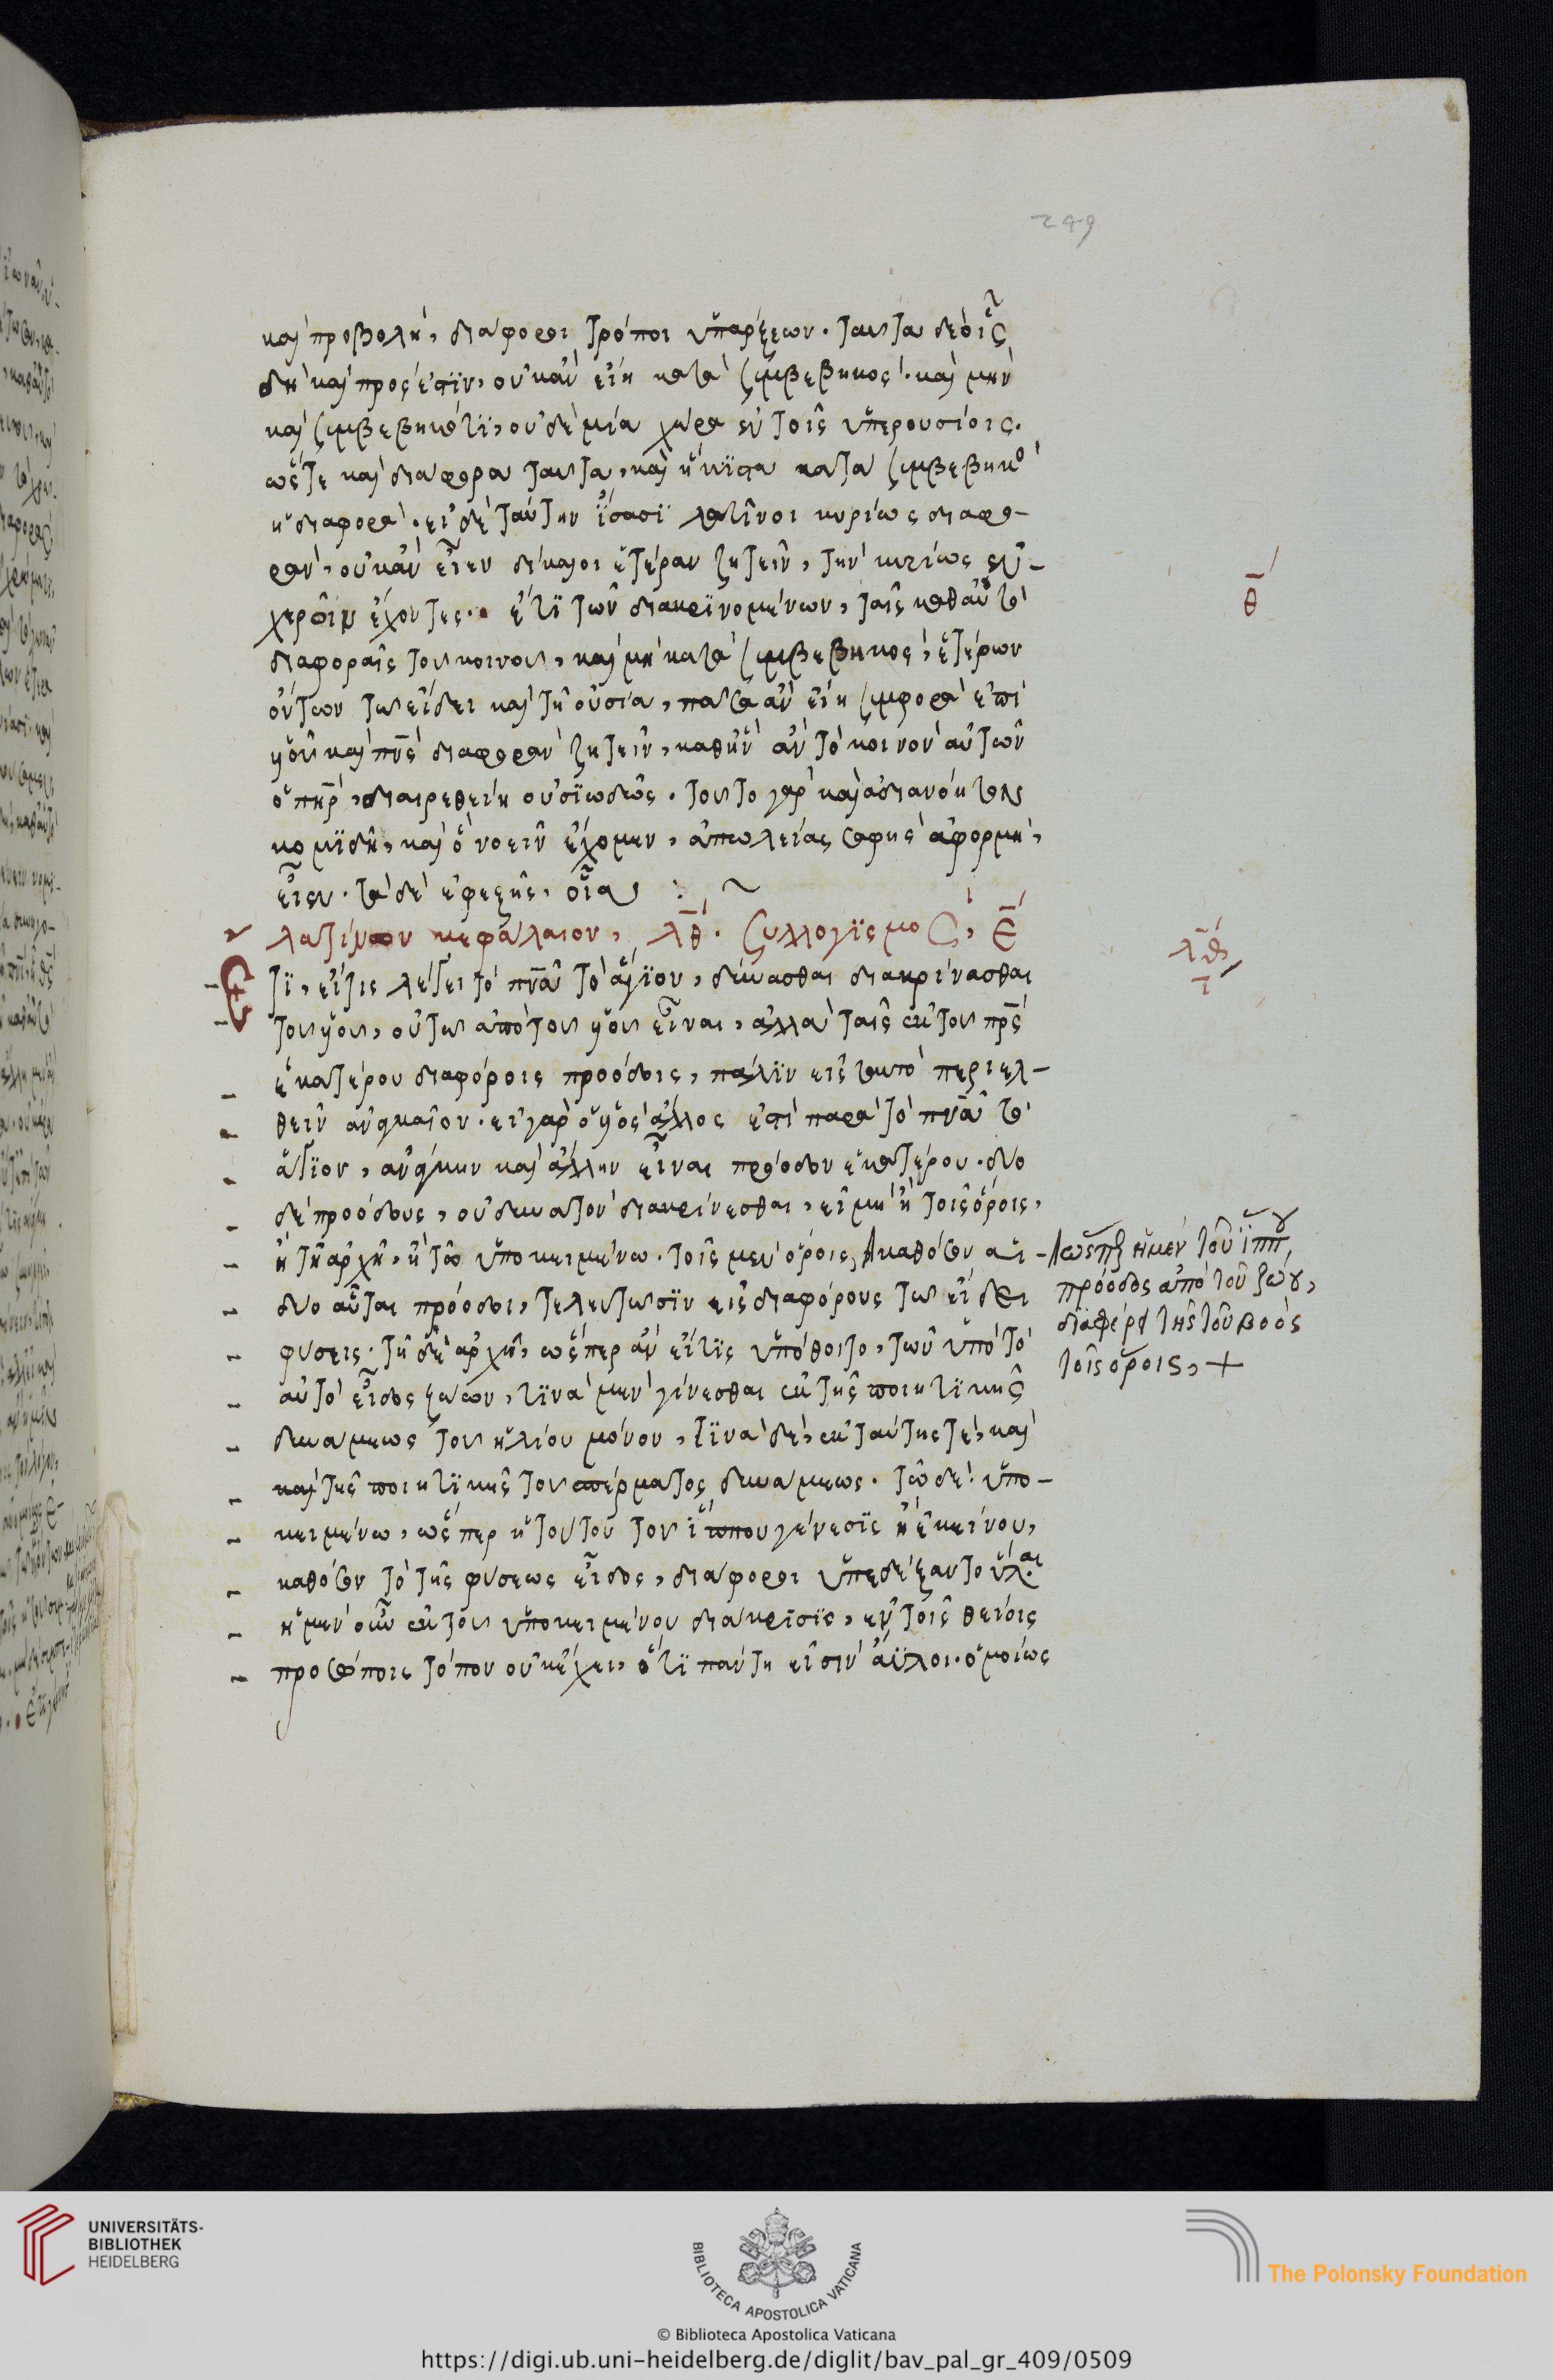 249
καὶ προβολὴ, διάφοροι τρόποι ὑπάρξεων. ταῦτα δὲ οἷς
δὴ καὶ πρόσεστϊν, οὐκ ἂν εἴη κατὰ συμβεβηκός. καὶ μὴν
καὶ συμβεβηκότϊ, οὐδὲ μία χώρα ἐν τοῖς ὑπερουσίοις.
ὥστε καὶ διάφορα ταῦτα, καὶ ἥκϊστα κατὰ συμβεβηκὸ
ἡ διαφορά. εἰ δὲ ταύτην ἴσασϊ λατῖνοι κυρίως διαφο-
ράν, οὐκ ἂν εἶεν δίκαιοι ἑτέραν ζητεῖν, τὴν κυρίως ἐν
χεροῖν ἔχοντες. ἔτϊ τῶν διακρϊνομένων, ταῖς καθαυτὸ
θ
διαφοραῖς τοῦ κοινοῦ, καὶ μὴ κατὰ συμβεβηκὸς, ἑτέρων
ὄντων τῶ εἴδει καὶ τῆ οὐσία, πᾶσα ἂν εἴη συμφορὰ ἐπὶ
υἱοῦ καὶ πνς διαφορὰν ζητεῖν, καθ' ἣν ἂν τὸ κοινὸν αὐτῶν
ὁ πηρ, διαιρεθείη οὐσϊωδῶς. τοῦτο γὰρ καὶ ἀδιανόητον
κομϊδῆ, καὶ ὃ νοεῖν ἔχομεν, ἀπωλείας σαφὴς ἀφορμὴ,
εἶεν. τὰ δὲ ἐφεξῆς, οἷα :~
λατίνων κεφάλαιον, λθ. συλλογϊσμος, ε
λθ
ι
Ετϊ, εἴ τις λέγει τὸ πνα τὸ ἅγϊον, δύνασθαι διακρίνασθαι
τοῦ υἱοῦ, οὔτω ἀπὸ τοῦ υἱοῦ εἶναι, ἀλλὰ ταῖς ἐκ τοῦ πρς
ἑκατέρου διαφόροις προόδοις, πάλϊν εἰς ταυτὸ περιελ-
θεῖν ἀναγκαῖον. εἰ γὰρ ὁ υἱὸς ἄλλος ἐστὶ παρὰ τὸ πνα τὸ
ἅγϊον, ἀνάγκην καὶ ἄλλην εἶναι πρόοδον ἑκατέρου. δύο
δὲ προόδους, οὐ δυνατὸν διακρίνεσθαι, εἰ μὴ ἢ τοῖς ὅροις,
ἢ τῆ ἀρχῆ, ἢ τῶ ὑποκειμένω. τοῖς μὲν ὅροις, καθόσον αἱ
δύο αὗται πρόοδοι, τελευτῶσϊν εἰς διαφόρους τῶ εἴδει
φύσεις. τῆ δὲ ἀρχῆ, ὥσπερ ἂν εἴ τϊς ὑπόθοιτο, τῶν ὑπὸ τὸ
αὐτὸ εἶδος ζώων, τϊνὰ μὲν γίνεσθαι ἐκ τῆς ποιητϊκῆς
δυνάμεως τοῦ ἡλίου μόνου, τϊνὰ δὲ, ἐκ ταύτης τὲ, καὶ
καὶ τῆς ποιητϊκῆς τοῦ σπέρματος δυνάμεως. τῶ δὲ ὑπο-
κειμένω, ὥσπερ ἡ τούτου τοῦ ἵππου γένεσϊς ἢ ἐκείνου,
καθόσον τὸ τῆς φύσεως εἶδος, διάφοροι ὑπεδέξαντο ὗλαι
ἡ μὲν οὖν ἐκ τοῦ ὑποκειμένου διάκρισϊς, ἐν τοῖς θείοις
προσώποις τόπον οὐκ ἔχει, ὅτϊ πάντη εἰσὶν ἄϋλοι. ὁμοίως
ὥσπερ ἡ μὲν τοῦ ἵππου,
πρόοδος ἀπὸ τοῦ ζώου,
διαφέρει τῆς τοῦ βοὸς
τοῖς ὅροις, +
UNIVERSITÄTS-
BIBLIOTHEK
HEIDELBERG
BIBLIOTECA APOSTOLICA VATICANA
The Polonsky Foundation
© Biblioteca Apostolica Vaticana
https://digi.ub.uni-heidelberg.de/diglit/bav_pal_gr_409/0509